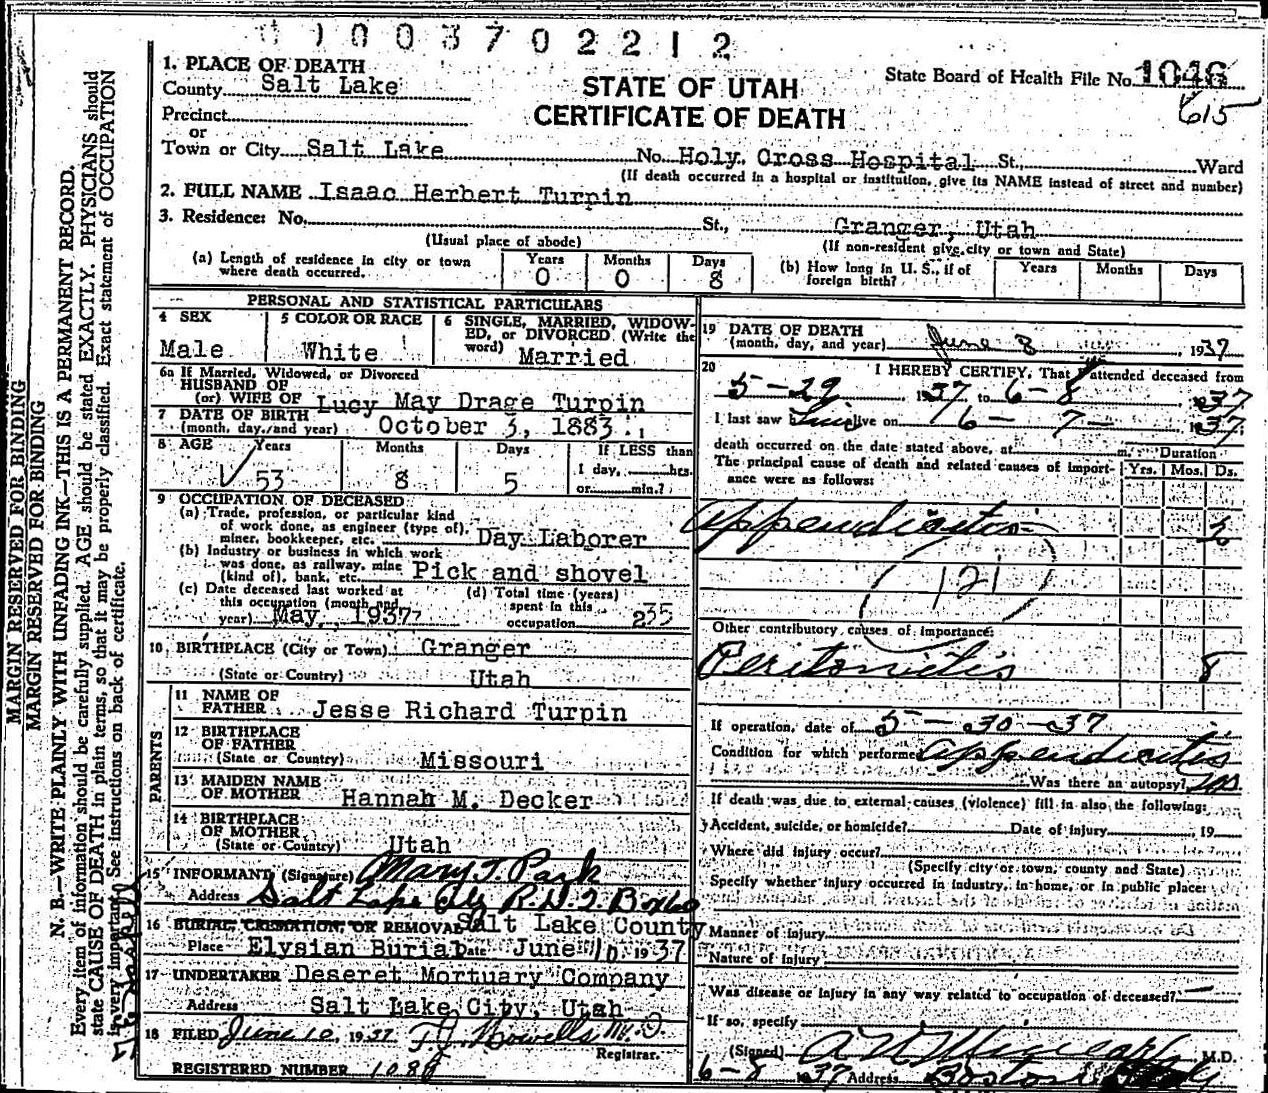 003702212
1. PLACE OF DEATH
County Salt Lake
STATE OF UTAH
CERTIFICATE OF DEATH
State Board of Health File No. 1046
615
Precinct
or
Town or City Salt Lake No. Holy Cross Hospital St. Ward
(If death occurred in a hospital or institution, give its NAME instead of street and number)
2. FULL NAME Isaac Herbert Turpin
3. Residence: No. St., Granger, Utah
(Usual place of abode) (If non-resident give city or town and State)
(a) Length of residence in city or town where death occurred. Years 0 Months 0 Days 8
(b) How long in U. S., if of foreign birth? Years Months Days
PERSONAL AND STATISTICAL PARTICULARS
4 SEX Male
5 COLOR OR RACE White
6 SINGLE, MARRIED, WIDOWED, or DIVORCED (Write the word) Married
6a If Married, Widowed, or Divorced
HUSBAND OF
(or) WIFE OF Lucy May Drage Turpin
7 DATE OF BIRTH
(month, day, and year) October 3, 1883
8 AGE Years 53 Months 8 Days 5 If LESS than 1 day, hrs. or min.?
9 OCCUPATION OF DECEASED
(a) Trade, profession, or particular kind
of work done, as engineer (type of),
miner, bookkeeper, etc. Day Laborer
(b) Industry or business in which work
was done, as railway, mine
(kind of), bank, etc. Pick and shovel
(c) Date deceased last worked at
this occupation (month and
year) May, 1937
(d) Total time (years)
spent in this
occupation 35
10. BIRTHPLACE (City or Town) Granger
(State or Country) Utah
PARENTS
11 NAME OF
FATHER Jesse Richard Turpin
12 BIRTHPLACE
OF FATHER
(State or Country) Missouri
13 MAIDEN NAME
OF MOTHER Hannah M. Decker
14 BIRTHPLACE
OF MOTHER
(State or Country) Utah
15 INFORMANT (Signature) Mary T. Park
Address Salt Lake City R.D. 2 Box 60
16 BURIAL, CREMATION, OR REMOVAL Salt Lake County
Place Elysian Burial Date June 10 1937
17 UNDERTAKER Deseret Mortuary Company
Address Salt Lake City, Utah
18 FILED June 10, 1937 Howells M.D.
Registrar.
REGISTERED NUMBER 1088
19 DATE OF DEATH
(month, day, and year) June 8, 1937
20 I HEREBY CERTIFY, That I attended deceased from
5-29 1937 to 6-8, 1937
I last saw him alive on 6-7- 1937
death occurred on the date stated above, at m.
The principal cause of death and related causes of importance were as follows:
Duration
Yrs. Mos. Ds.
Appendicitis
121
Other contributory causes of importance:
Peritonitis 8
If operation, date of 5-30-37
Condition for which performed Appendicitis
Was there an autopsy?
If death was due to external causes (violence) fill in also the following:
Accident, suicide, or homicide? Date of injury, 19
Where did injury occur?
(Specify city or town, county and State)
Specify whether injury occurred in industry, in home, or in public place:
Manner of Injury
Nature of Injury
Was disease or injury in any way related to occupation of deceased? —
If so, specify
(Signed) M.D.
6-8 1937 Address Boston
MARGIN RESERVED FOR BINDING
MARGIN RESERVED FOR BINDING
N. B.—WRITE PLAINLY WITH UNFADING INK—THIS IS A PERMANENT RECORD.
Every item of information should be carefully supplied. AGE should be stated EXACTLY. PHYSICIANS should
state CAUSE OF DEATH in plain terms, so that it may be properly classified. Exact statement of OCCUPATION
is very important. See instructions on back of certificate.